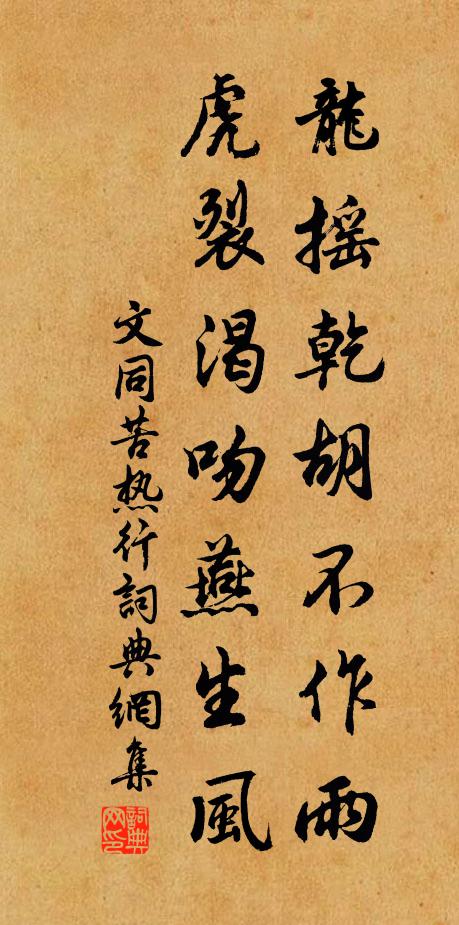 龍摇乾胡不作雨
虎裂渴吻燕生風
文同苦热行詞典網集
詞典网印